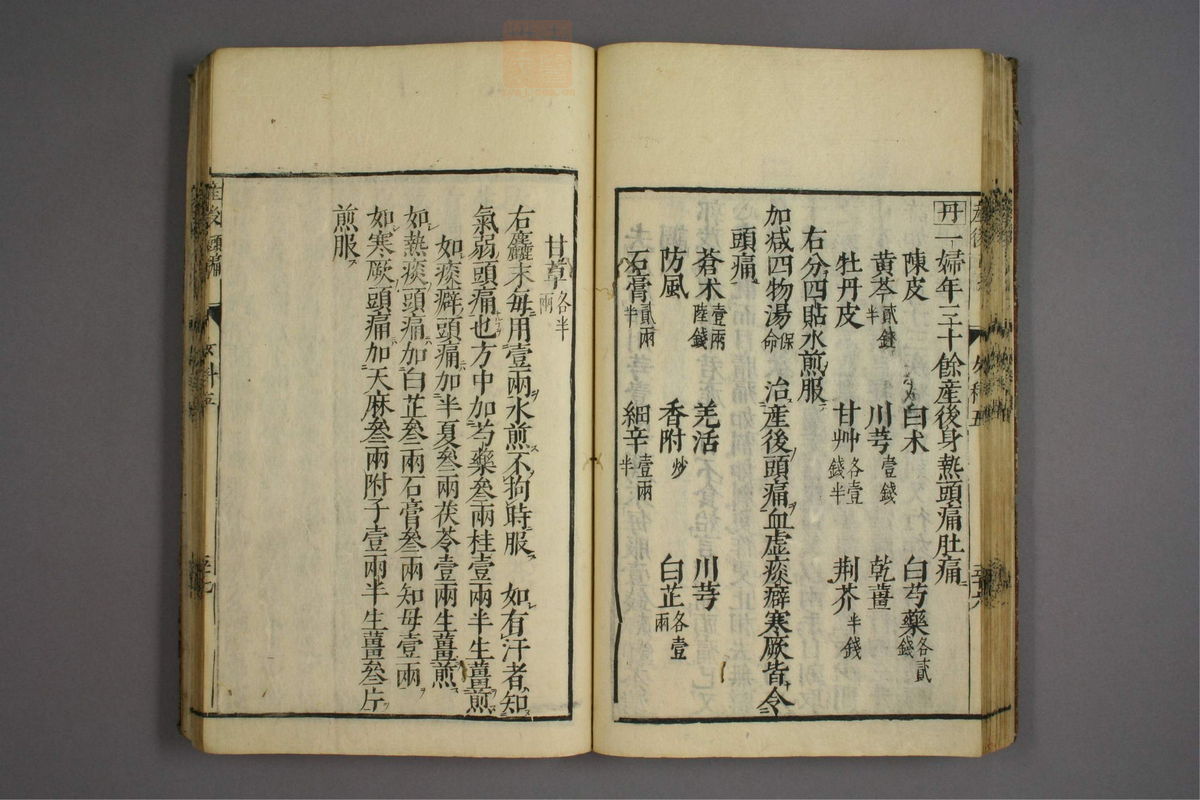 丹一婦年三十餘産後身熱頭痛肚痛
陳皮 白朮 白芍藥各貳錢
黄芩貳錢半 川芎壹錢 乾薑
牡丹皮 甘艸各壹錢半 荆芥半錢
右分四貼水煎服
加减四物湯保命 治産後頭痛血虚痰癖寒厥皆令
頭痛
蒼朮壹兩陸錢 羌活 川芎
防風 香附炒 白芷各壹兩
石膏貳兩半 細辛壹兩半
甘草各半兩
右麤末每用壹兩水煎不狗時服 如有汗者知
氣弱頭痛也方中加芍藥叄兩桂壹兩半生薑煎
如痰癖頭痛加半夏叄兩茯苓壹兩生薑煎
如熱痰頭痛加白芷叄兩石膏叄兩知母壹兩
如寒厥頭痛加天麻叄兩附子壹兩半生薑叄片
煎服